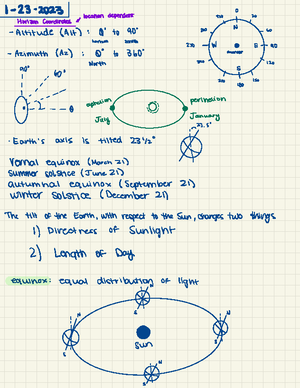 1-23-2023
Horizon Coordinates → location dependent
- Altitude (Alt): 0° to 90°
horizon zenith
- Azimuth (Az): 0° to 360°
North
N
W E
S
90°
60°
aphelion
July
perihelion
January
23.5°
· Earth's axis is tilted 23 1/2°
Vernal equinox (March 21)
Summer solstice (June 21)
autumnal equinox (September 21)
winter solstice (December 21)
The tilt of the Earth, with respect to the Sun, changes two things
1) Directness of Sunlight
2) Length of Day
equinox: equal distribution of light
N
S
N
S
Sun
N
S
N
S